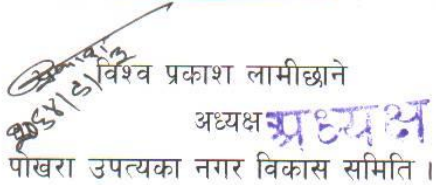 विश्व प्रकाश लामीछाने
अध्यक्ष अध्यक्ष
पोखरा उपत्यका नगर विकास समिति ।